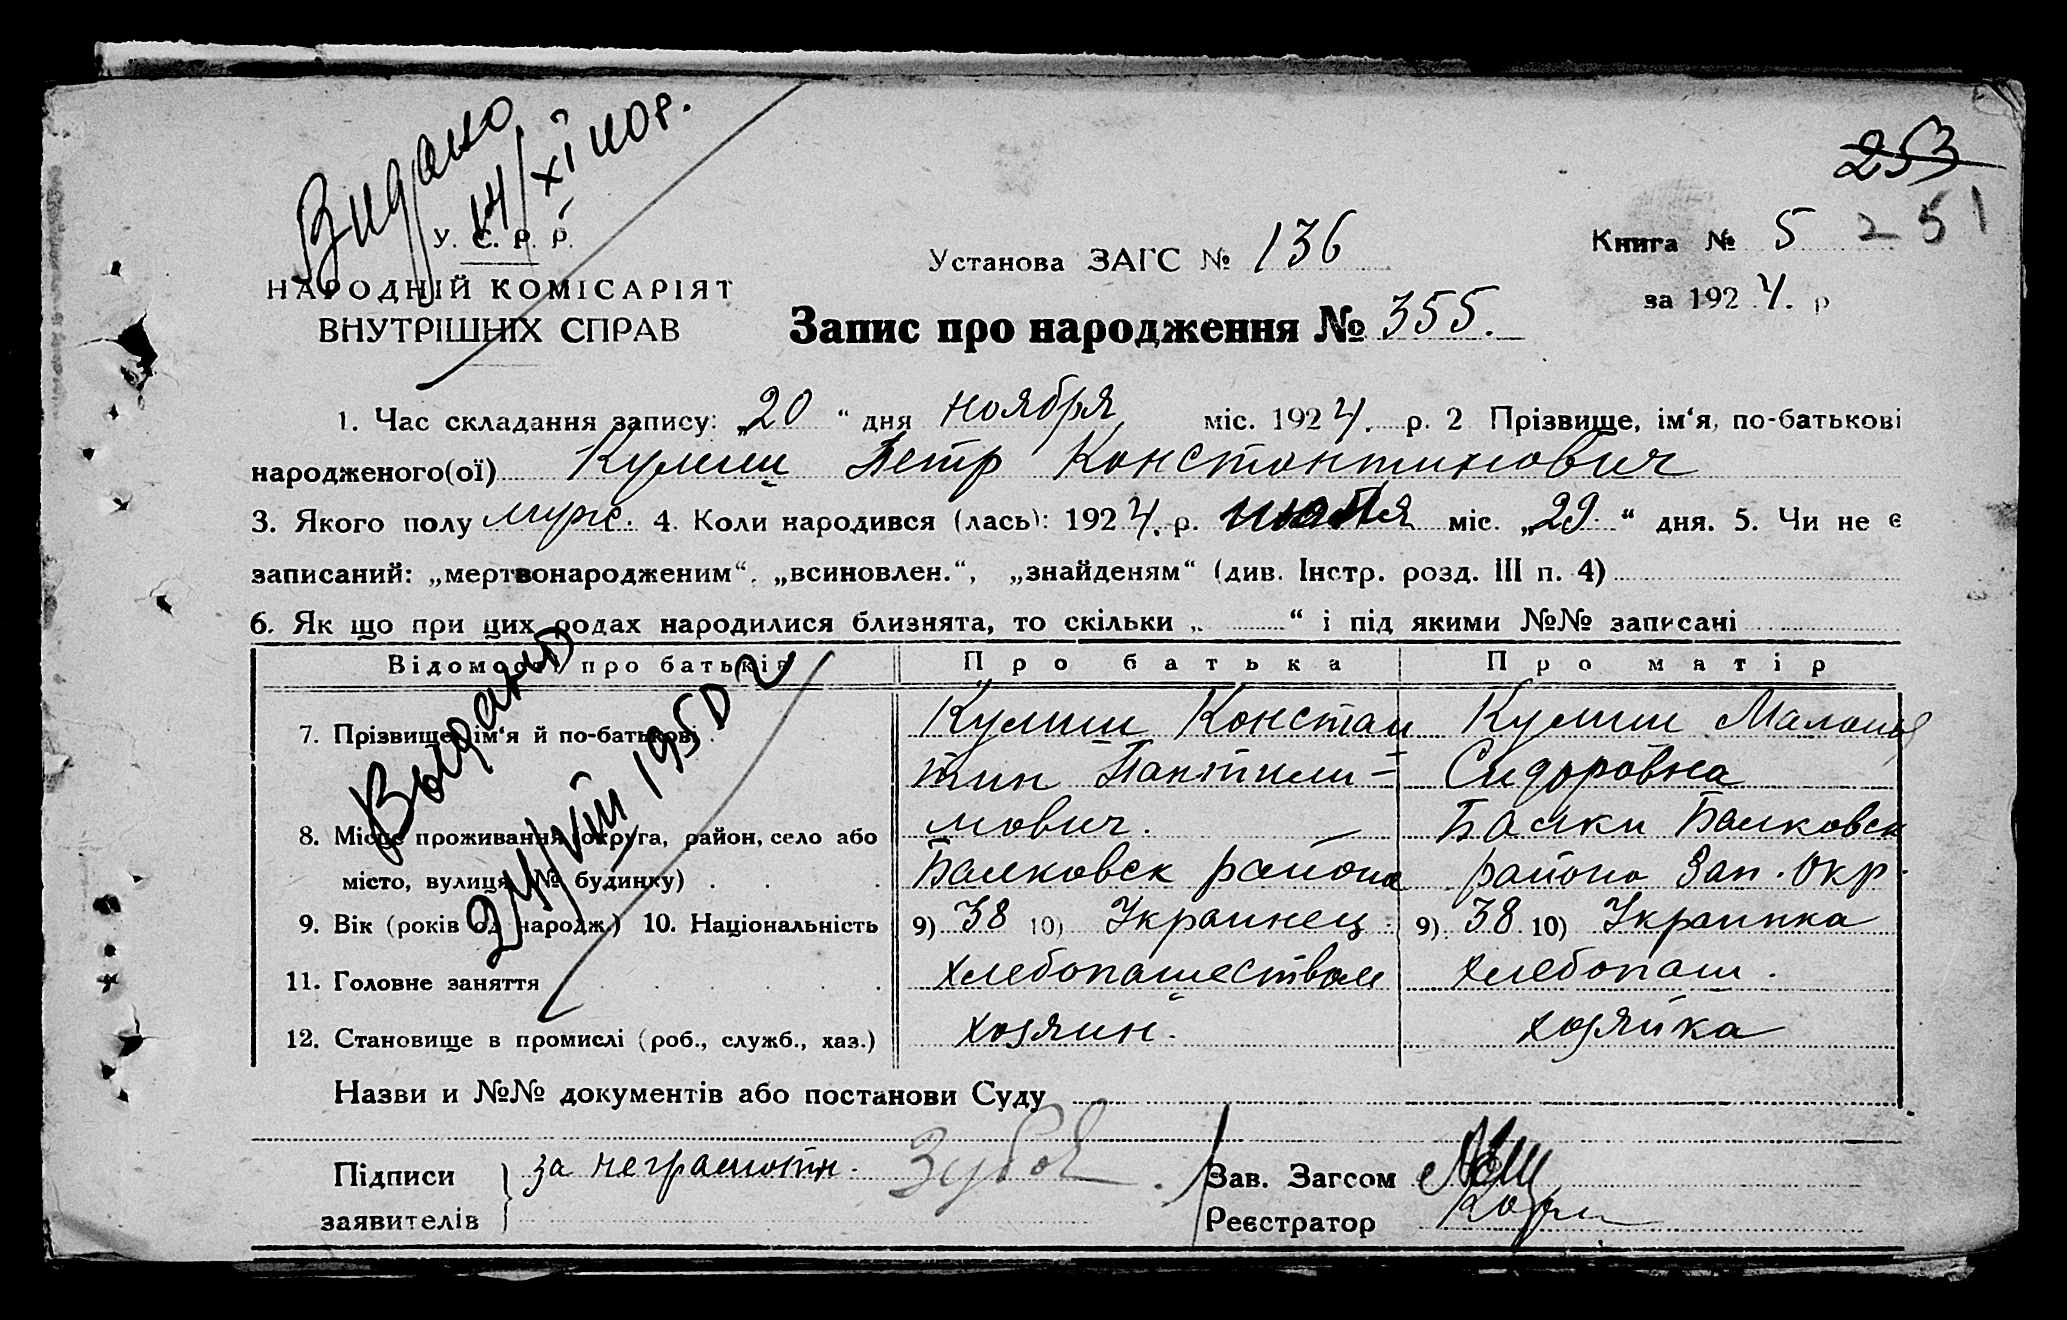 Видано
14/XI 40 г.
253
251
У. С. Р. Р.
НАРОДНІЙ КОМІСАРІЯТ
ВНУТРІШНІХ СПРАВ
Установа ЗАГС № 136
Книга № 5
за 1924. р
Запис про народження № 355.
1. Час складання запису: „20“ дня ноября міс. 1924. р. 2 Прізвище, ім‘я, по-батькові
народженого(ої) Кулиш Петр Константинович
3. Якого полу муж. 4. Коли народився (лась): 1924. р. міс. „29“ дня. 5. Чи не є
записаний: „мертвонародженим“, „всиновлен.“, „знайденям“ (див. Інстр. розд. III п. 4)
6. Як що при цих родах народилися близнята, то скільки „ “ і під якими №№ записані
Відомості про батьків
Про батька
Про матір
7. Прізвище, ім‘я й по-батькові
Кулиш Констан
тин Пантили-
мович.
Кулиш Малань
Сидоровна
8. Місце проживання (округа, район, село або
місто, вулиця, № будинку)
Балковск района
Балки Балковск
района Зап. Окр.
9. Вік (років од народж.) 10. Національність
9) 38 10) Украинец
9) 38 10) Украинка
11. Головне заняття
хлебопашеством
хлебопаш.
12. Становище в промислі (роб., служб., хаз.)
хозяин.
хозяйка
Выдано
24/VIII 1950 г
Назви и №№ документів або постанови Суду
Підписи
заявителів
за неграмотн. Зубов
Зав. Загсом
Реєстратор